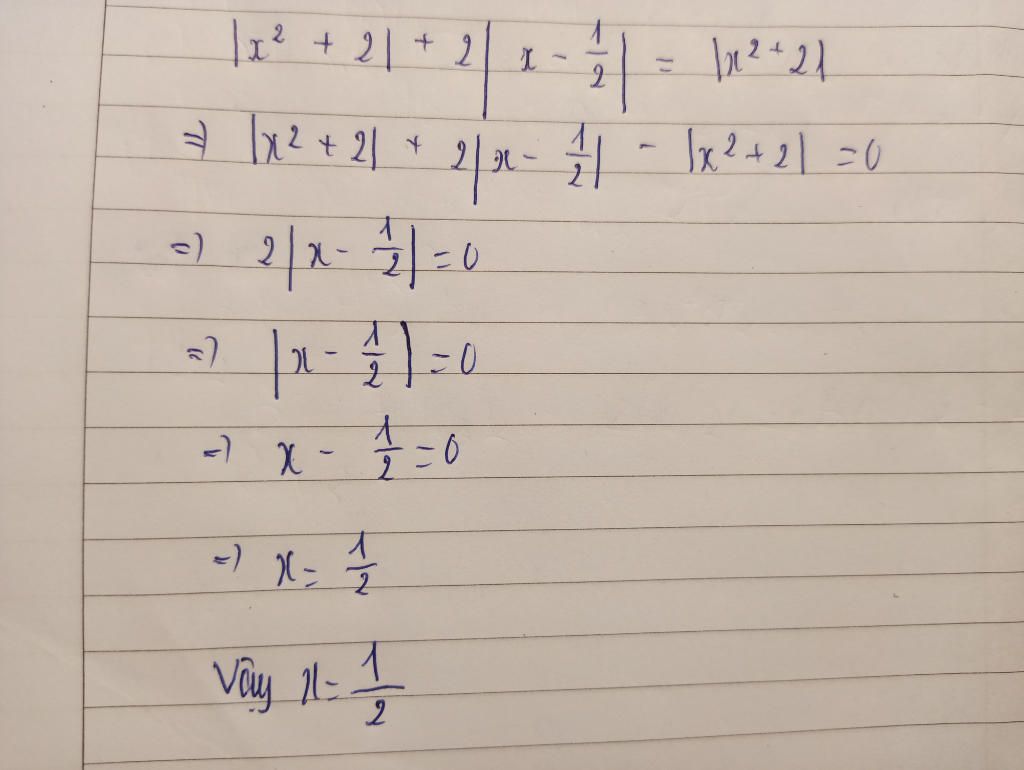 |x² + 2| + 2|x - 1/2| = |x² + 2|
=> |x² + 2| + 2|x - 1/2| - |x² + 2| = 0
=> 2|x - 1/2| = 0
=> |x - 1/2| = 0
=> x - 1/2 = 0
=> x = 1/2
Vậy x = 1/2